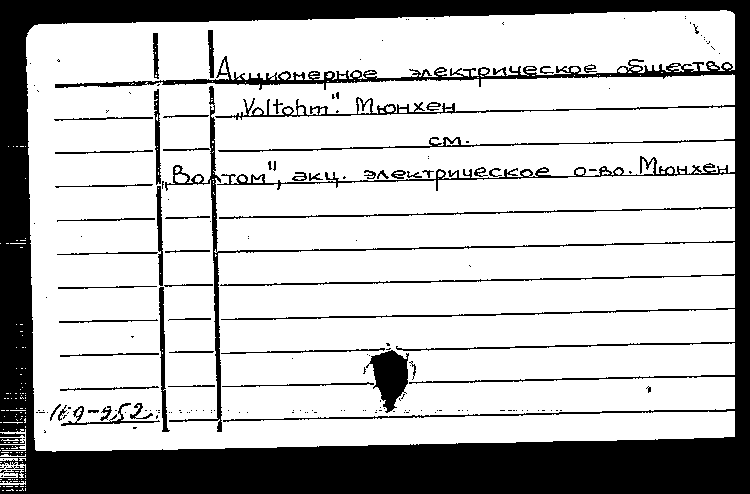 Акционерное электрическое общество
„Voltohm". Мюнхен
см.
„Волтом", акц. электрическое о-во. Мюнхен
169-952